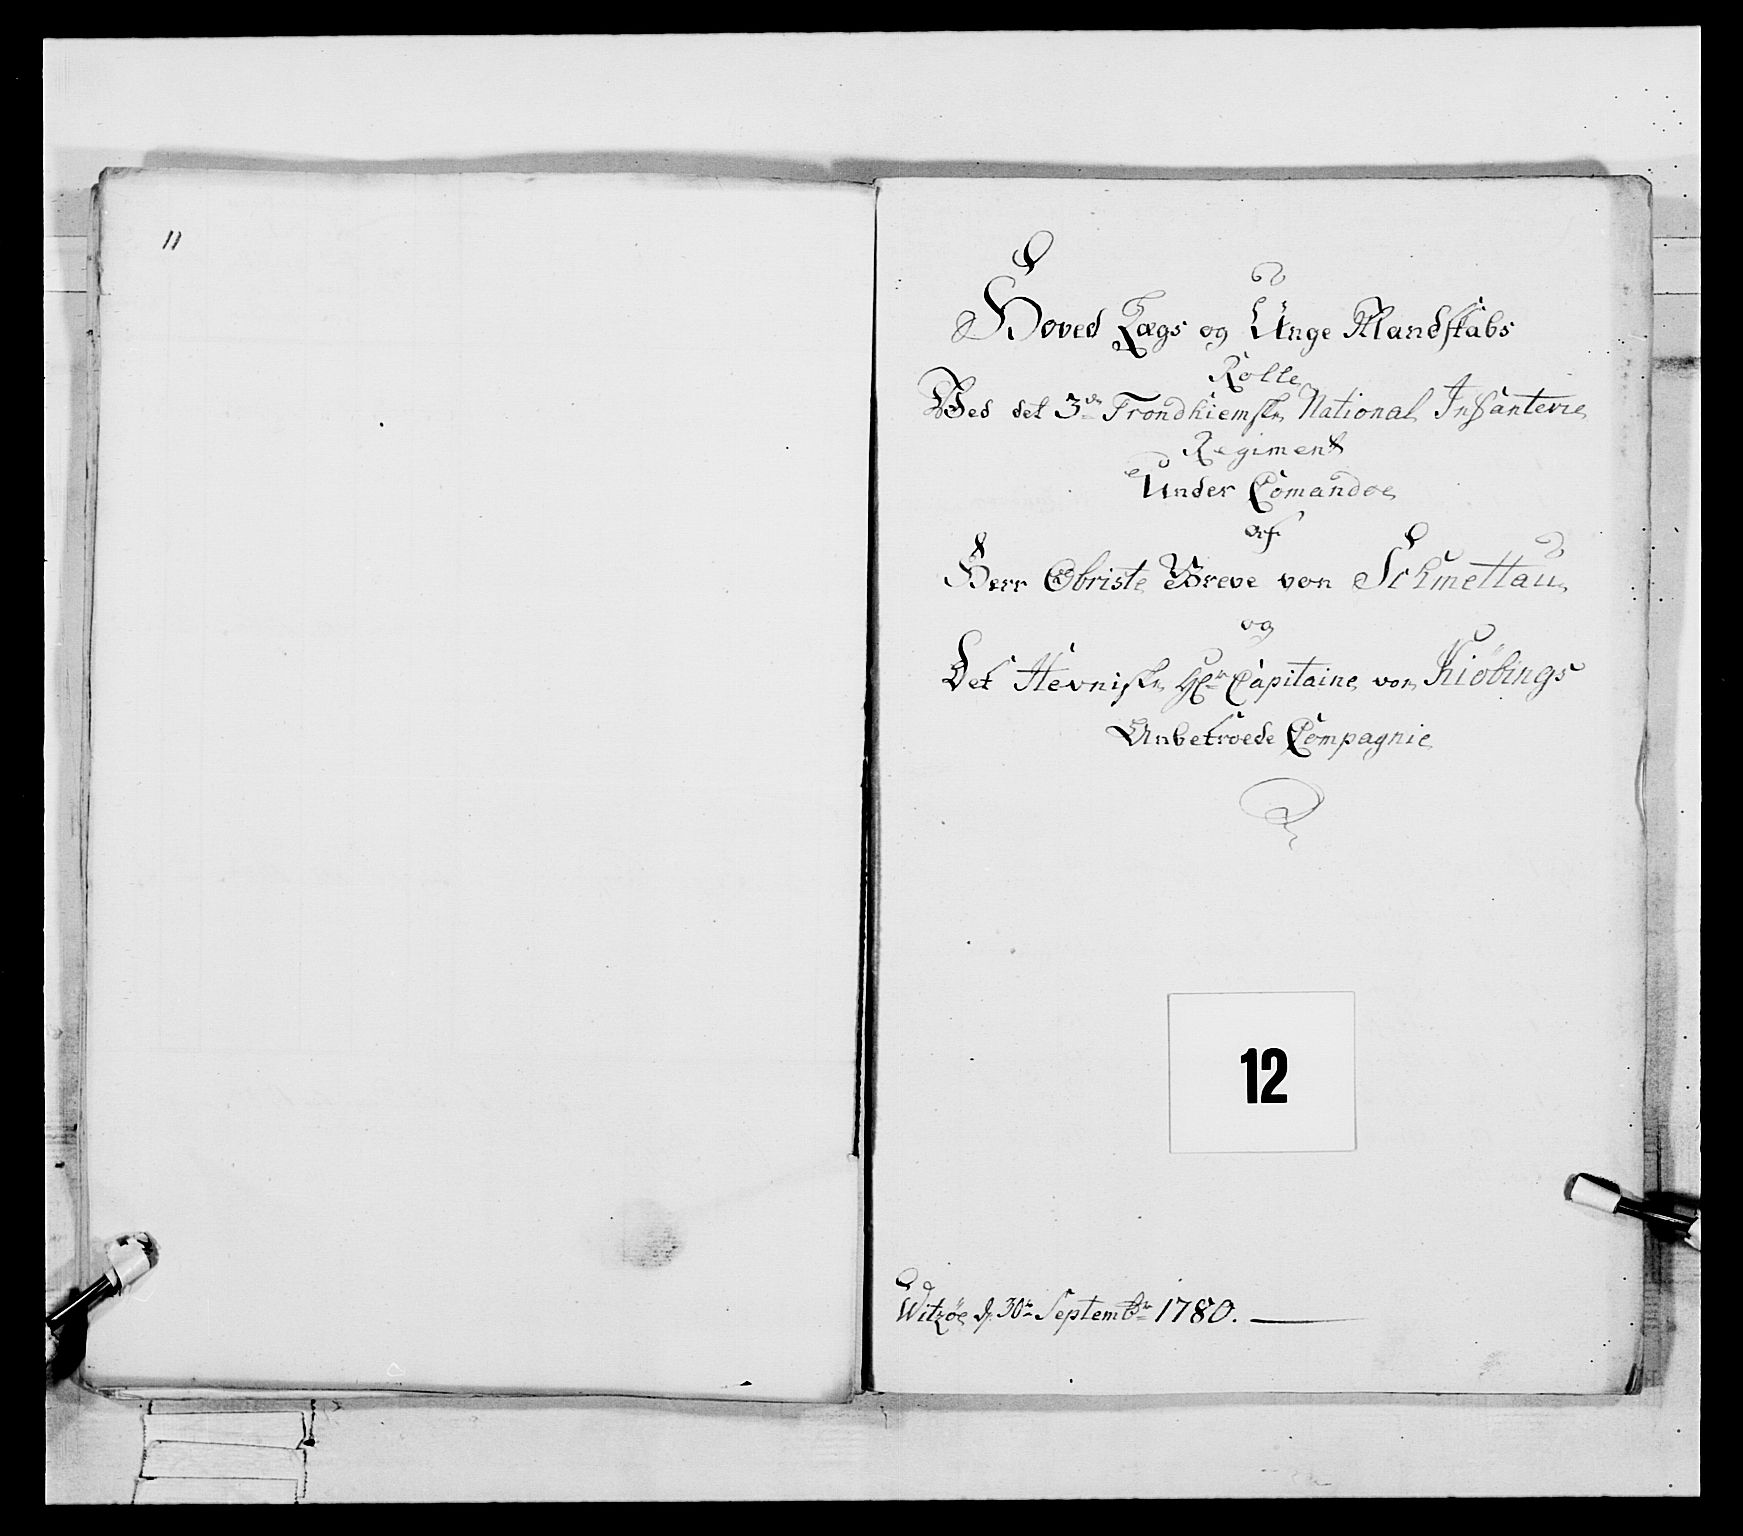 11
Hoved Lægs og Unge Mandskabs
Rolle
Ved det 3de Trondhiemske National Infanterie
Regiment
Under Comandoe
af
Herr Obriste Greve von Schmettau
og
Det Hevniske Hr Capitaine von Kiöbings
Anbetroede Compagnie
12
Witzöe d. 30te Septembr 1780.